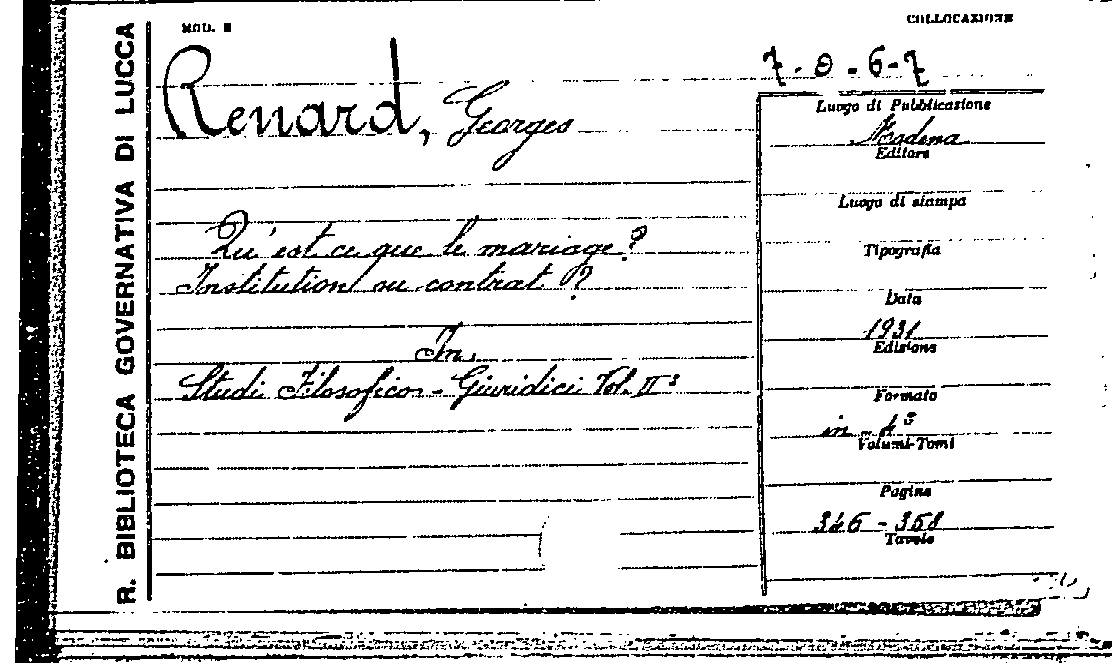 R. BIBLIOTECA GOVERNATIVA DI LUCCA
MOD. E
COLLOCAZIONE
7-0.6-7
Renard, Georges
Qu'est ce que le mariage?
Institution ou contrat?
In
Studi Filosofico-Giuridici Vol. II°
Luogo di Pubblicazione
Modena
Editore
Luogo di stampa
Tipografia
Data
1931
Edizione
Formato
in-4°
Volumi-Tomi
Pagine
346-358
Tavole